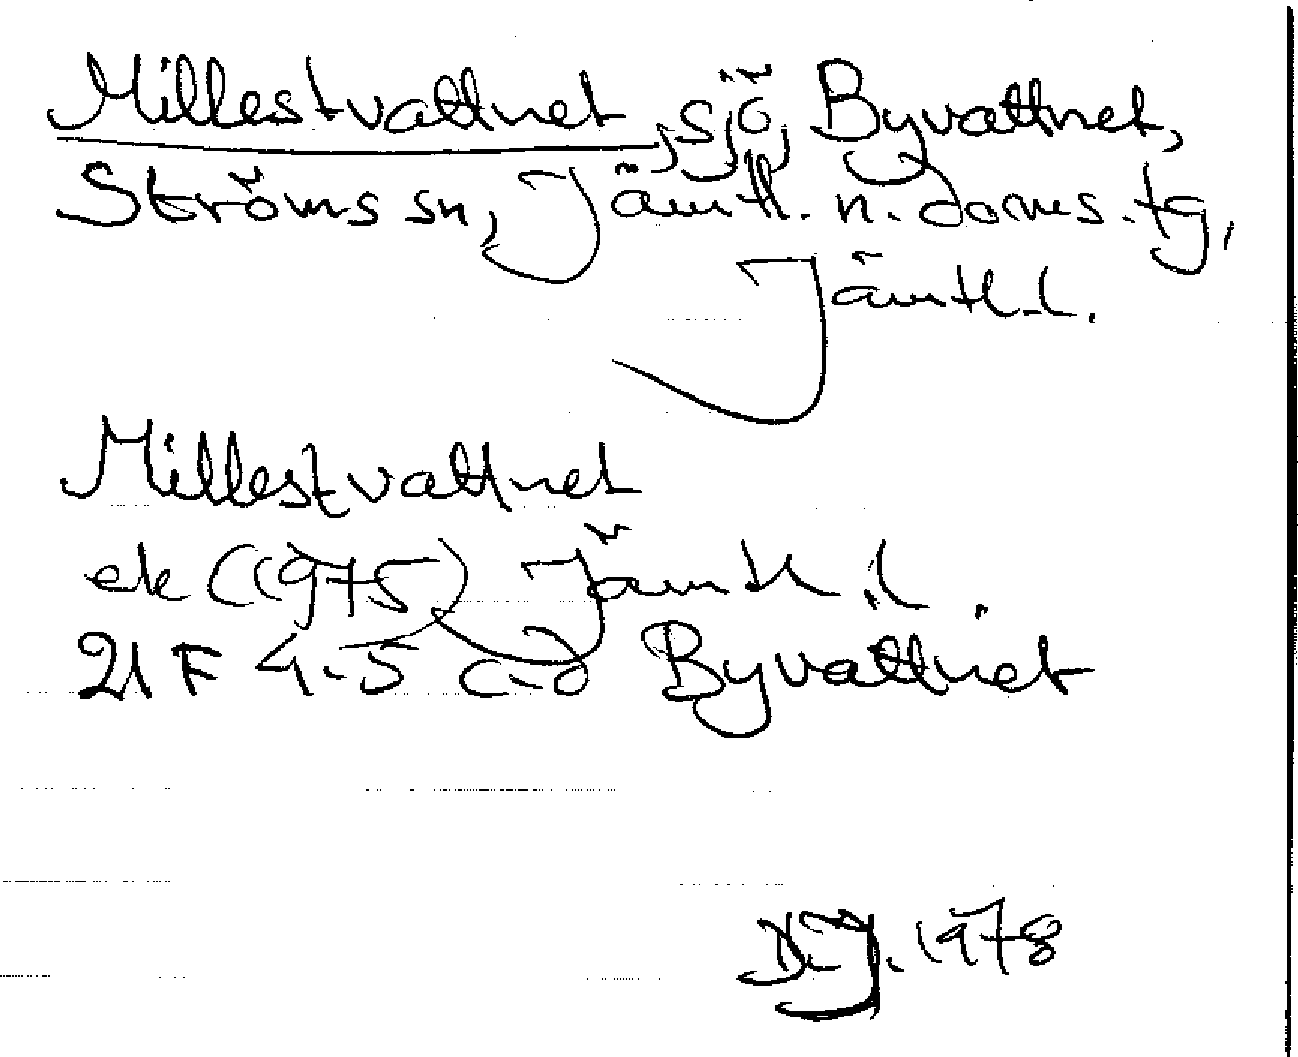 Millestvattnet, sjö, Byvattnet,
Ströms sn, Jämtl. n. doms. tg,
Jämtl. l.
Millestvattnet
ek (1975) Jämtl. l.
21 F 4-5 c-d Byvattnet
1978